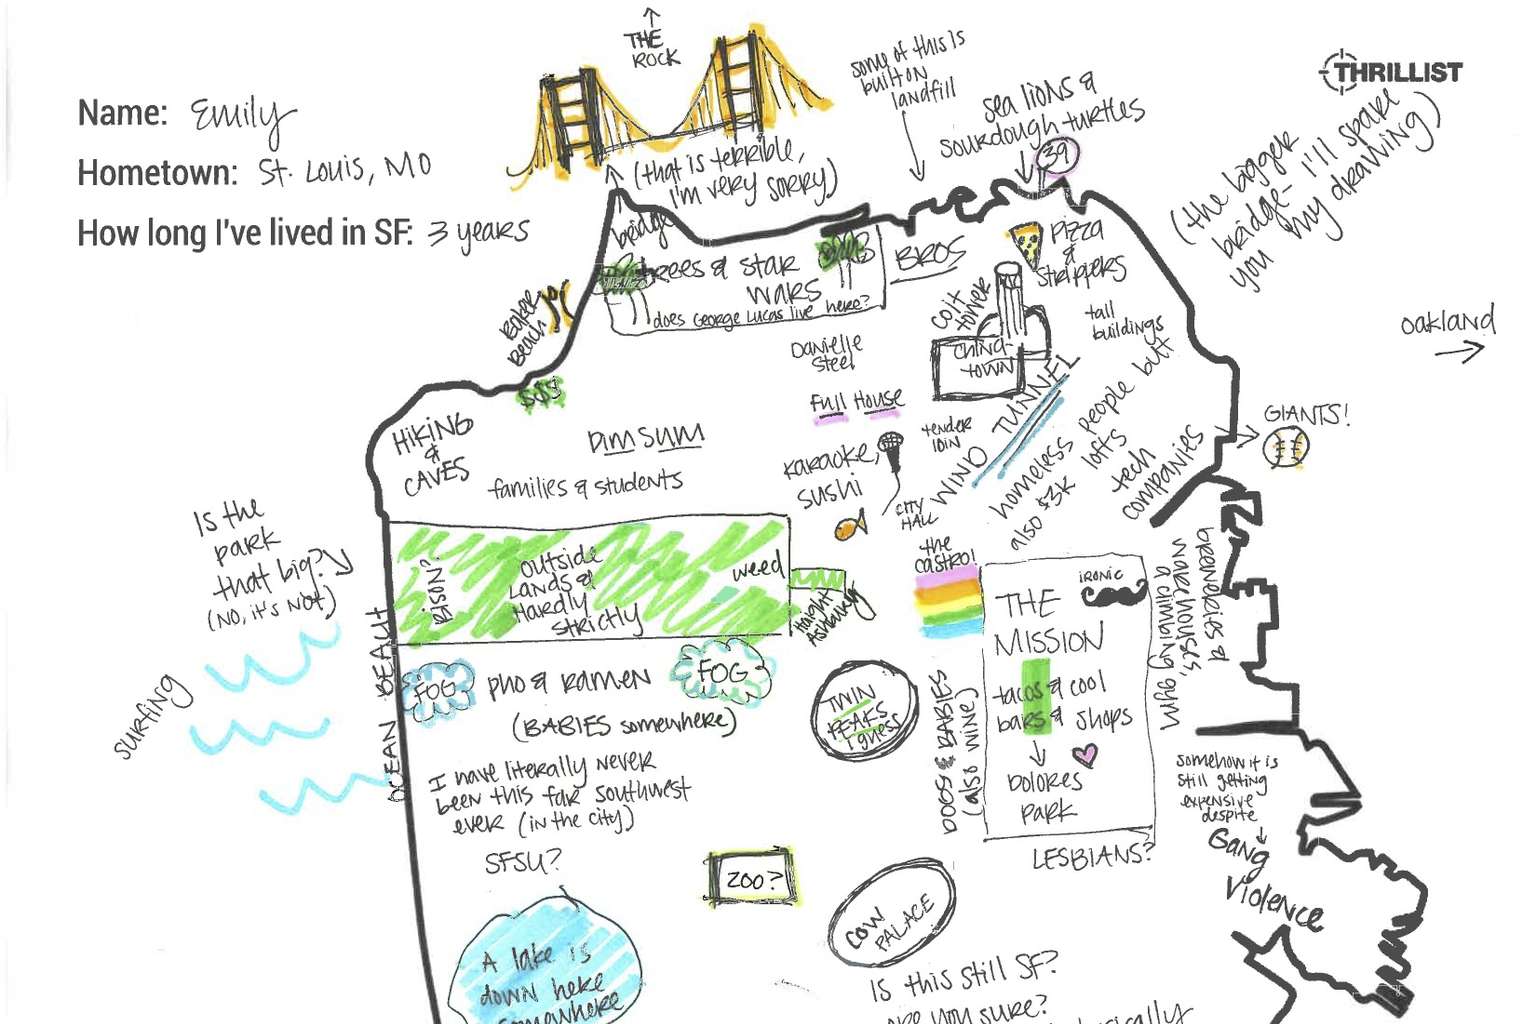 THRILLIST
Name: Emily
Hometown: St. Louis, MO
How long I've lived in SF: 3 years
THE
ROCK
(that is terrible,
I'm very sorry)
bridge
some of this is
built on
landfill
sea lions &
sourdough turtles
39
(the bigger
bridge - I'll spare
you my drawing)
Oakland
trees & star
wars
does George Lucas live here?
BROS
Pizza
&
strippers
Coit
tower
tall
buildings
China-
town
Baker
Beach
Danielle
Steel
Full House
tender
loin
WIND TUNNEL
homeless people but
also $3K lofts
tech
companies
GIANTS!
HIKING
&
CAVES
Dim Sum
families & students
Karaoke,
sushi
CITY
HALL
Is the
park
that big?
(NO, it's not)
Bison?
outside
Lands &
Hardly
strictly
weed
Haight
Ashbury
the
castro!
THE
MISSION
ironic
tacos & cool
bars & shops
Dolores
Park
breweries &
warehouses'
a climbing gym
OCEAN BEACH
surfing
FOG
pho & Ramen
FOG
(BABIES somewhere)
TWIN
PEAKS
I guess
(also wine)
I have literally never
been this far southwest
ever (in the city)
SFSU?
LESBIANS?
somehow it is
still getting
expensive
despite
Gang
Violence
ZOO?
COW
PALACE
A lake is
down here
somewhere
Is this still SF?
are you sure?